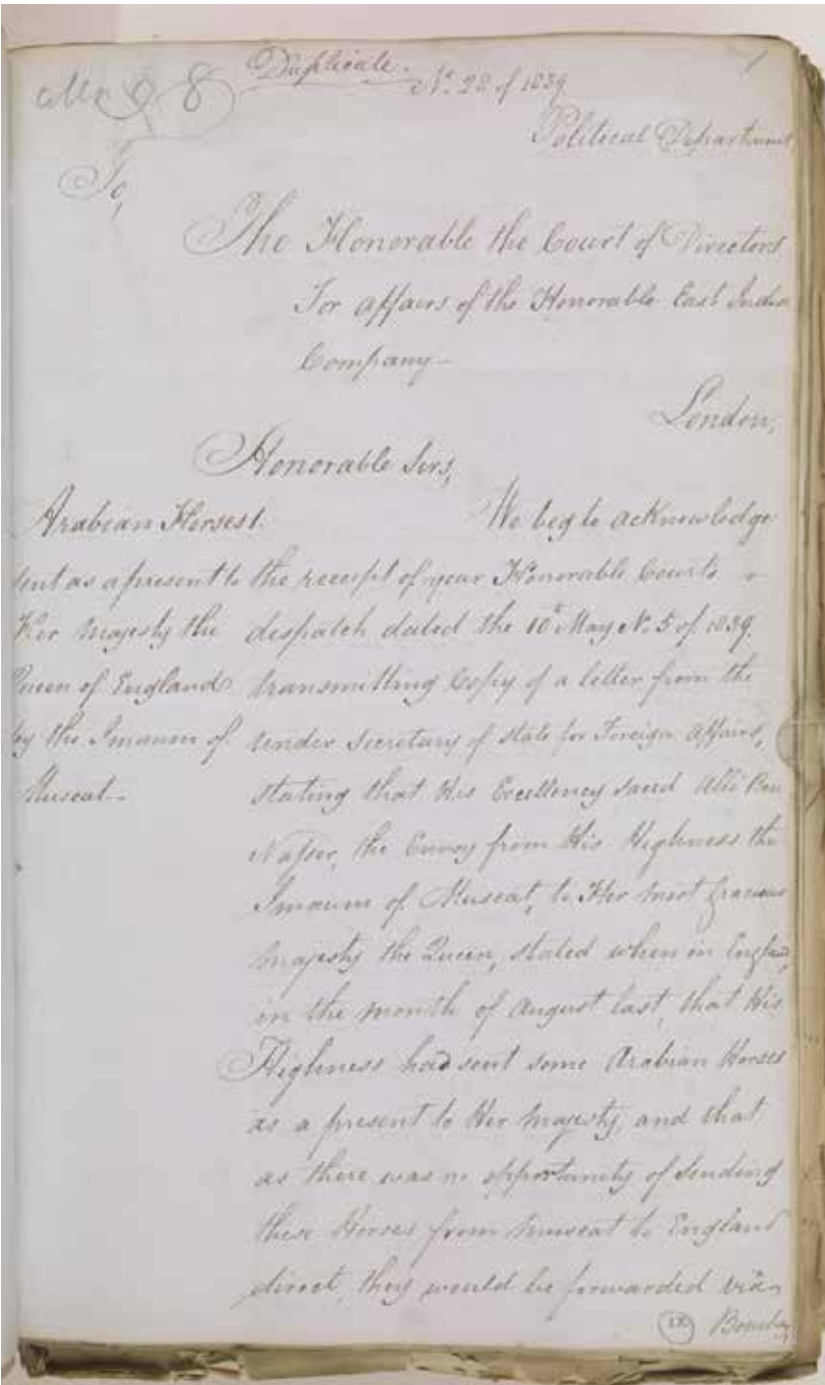 Duplicate.
No. 28 of 1839
Political Department
To,
The Honorable the Court of Directors
For affairs of the Honorable East India
Company –
London,
Honorable Sirs,
Arabian Horses
sent as a present to
Her Majesty the
Queen of England
by the Imaum of
Muscat –
We beg to acknowledge
the receipt of your Honorable Courts
despatch dated the 10th May No. 5 of 1839.
transmitting Copy of a letter from the
Under Secretary of State for Foreign Affairs,
stating that His Excellency Saeed Alli Ben
Nasser, the Envoy from His Highness the
Imaum of Muscat, to Her most Gracious
Majesty the Queen, stated when in England,
in the month of August last, that His
Highness had sent some Arabian Horses
as a present to Her Majesty, and that
as there was no opportunity of sending
these Horses from Muscat to England
direct, they would be forwarded via
Bombay